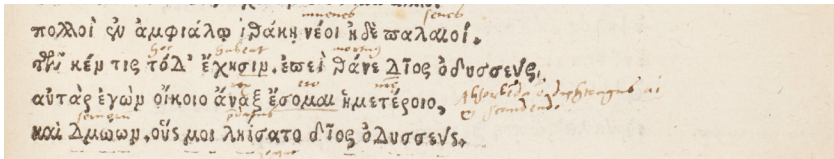 iuuenes senes
πολλοὶ ἐν ἀμφιάλῳ ἰθάκῃ νέοι ἠδὲ παλαιοί.
hoc habeat mortuus
τῶν κέν τις τόδ' ἔχησιν. ἐπεὶ θάνε δῖος ὀδυσσεύς.
ero
αὐτὰρ ἐγὼν οἴκοιο ἄναξ ἔσομαι ἡμετέροιο,
καὶ δμώων, οὕς μοι ληίσατο δῖος ὀδυσσεύς.